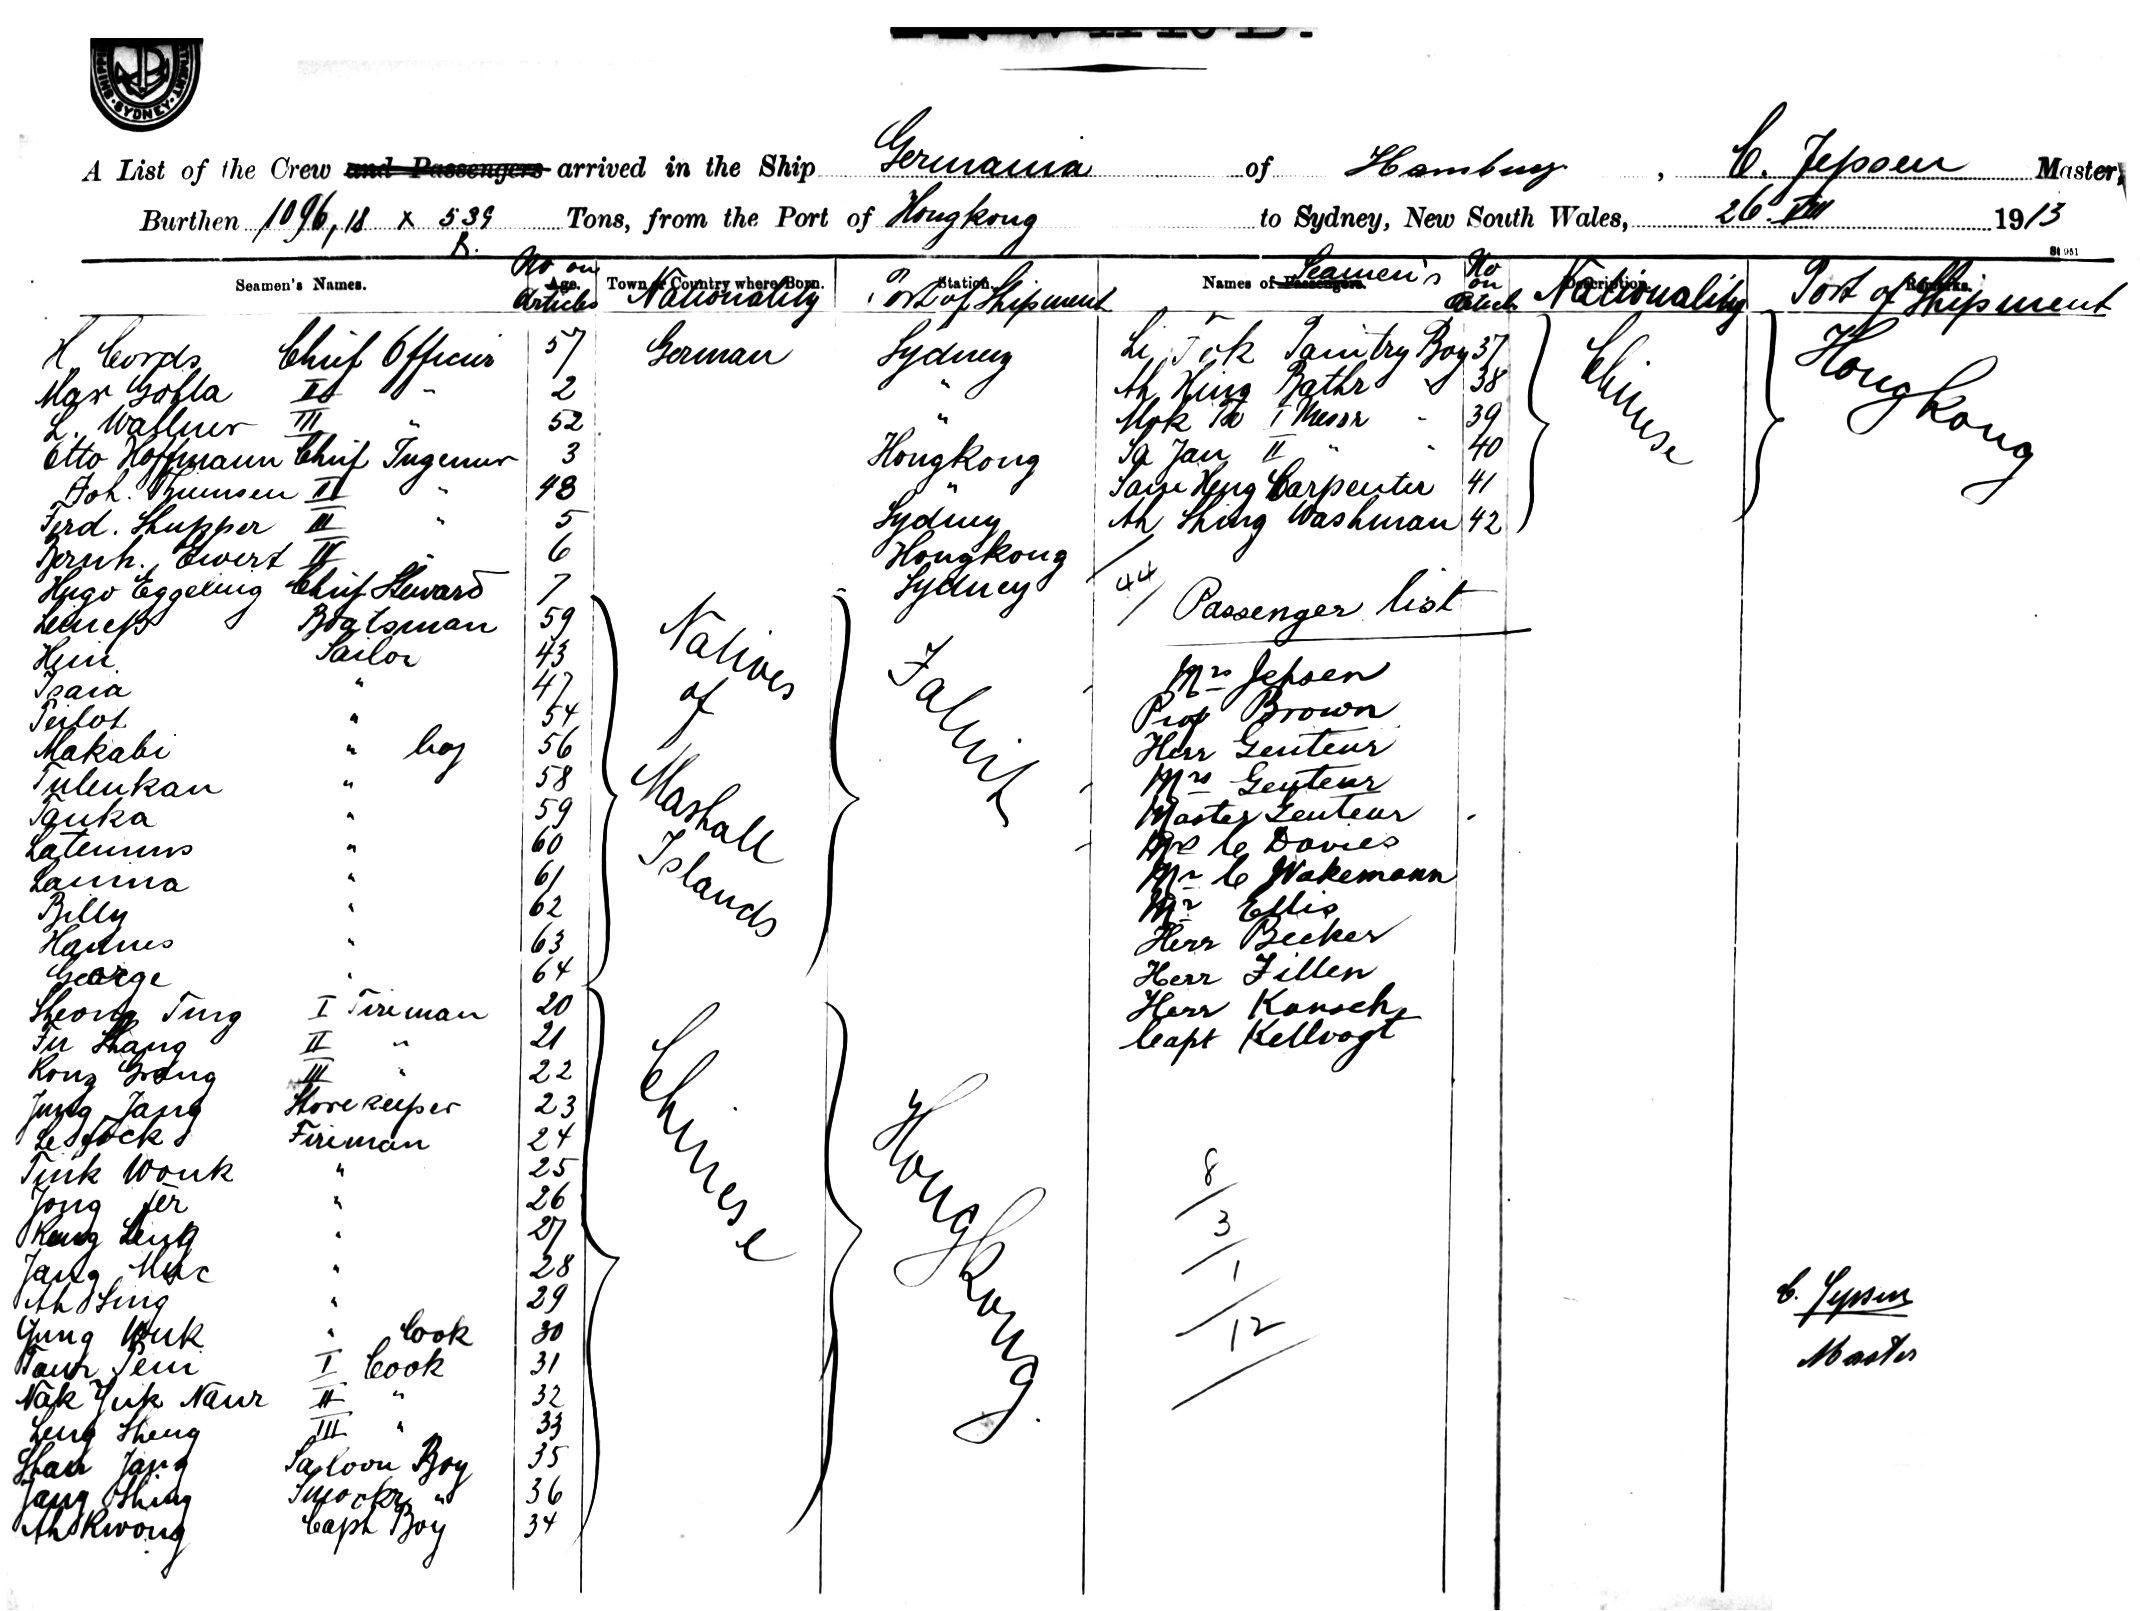 SYDNEY
A List of the Crew and Passengers arrived in the Ship Germania of Hamburg, C. Jepsen Master,
Burthen 1096,18 x 539 Tons, from the Port of Hongkong to Sydney, New South Wales, 26.VIII 1913
R.
St 961
Seamen's Names. No on Articles Age. Town or Country where Born. Nationality Station. Port of Shipment
H. Cords Chief Officier 57 German Sydney
Max II " 2 "
L. Wallner III " 52 "
Otto Hoffmann Chief Ingenieur 3 Hongkong
Joh. Thomsen II " 48 "
Ferd. Schupper III " 5 Sydney
Bernh. Ewert IV " 6 Hongkong
Hugo Eggeling Chief Steward 7 Sydney
Boatsman 59
Hein Sailor 43
Isaia " 47
Teilot " 54
Makabi " boy 56
Tulenkan " 58
Tanka " 59
" 60
Lanina " 61
Billy " 62
Hannes " 63
George " 64
Natives of Marshall Islands
Jaluit
Sheong Ting I Fireman 20
Fu Shang II " 21
Kong III " 22
Jung Jang Storekeeper 23
Fireman 24
Tink Wonk " 25
Jong Fer " 26
Leng " 27
Jang " 28
Ah Sing " 29
Yung " Cook 30
I Cook 31
Nak Yuk Naur II " 32
Leng Sheng III " 33
Shan Jang Saloon Boy 35
Jang Shing " 36
Ah Kwong Capt Boy 34
Chinese
Hongkong
Names of Passengers. Seamen's No on Article Description. Nationality Remarks. Port of Shipment
Li Fok Paintry Boy 37
Ah Hing Bathr " 38
Mok I Messr " 39
Sa Jan II " " 40
Sam Heng Carpenter 41
Ah Shing Washman 42
Chinese
Hongkong
44
Passenger list
Mrs Jepsen
Prof Brown
Herr Genteur
Mrs Genteur
Master Genteur
C Davies
Mr C Wakemann
Mr Ellis
Herr Becker
Herr Fillen
Herr Karsch
Capt Kellvogt
8
3
1
12
C. Jepsen
Master